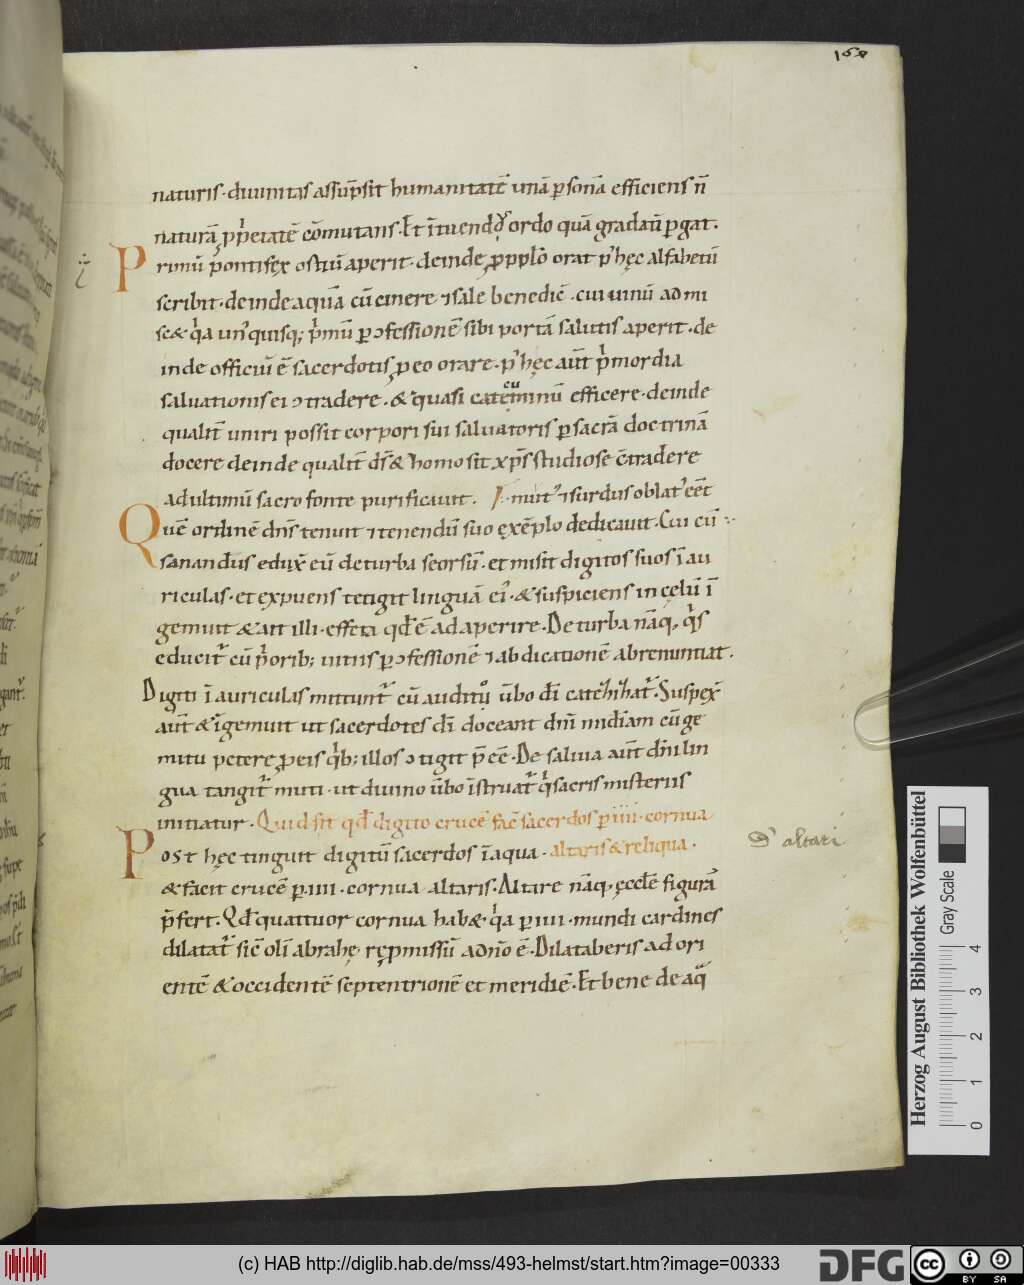 158
naturis. diuinitas assūpsit humanitatē unā ꝑsonā efficiens n̄
naturā, ꝓp̍etatē cōmutans. Et ītuendꝰ ordo quā gradatī ꝑgat.
Primū pontifex ostiū aperit. deinde ꝓ pplo orat pꝰ hęc alfabetū
scribit. deinde aquā cū cinere ⁊ sale benedic̄. cui uinū admi
sc& q̍a unꝰquisq; p̍mū ꝑ ↄfessionē sibi portā salutis aperit. de
inde officiū ē sacerdotis ꝓ eo orare. pꝰ hęc aut̄ p̍mordia
saluationis ei ↄtradere. & quasi catęcuminū efficere. deinde
qualit̄ uniri possit corpori sui saluatoris ꝑ sacrā doctrinā
docere deinde qualit̄ ds̄ & homo sit xp̄s studiose c̄tradere
ad ultimū sacro fonte purificauit. mutꝰ ⁊ surdus oblatꝰ eēt
Quē ordinē dn̄s tenuit ⁊ tenendū suo exēplo dedicauit. Cui cū
sanandus edux̄ eū de turba seorsū. et misit digitos suos ī au
riculas. et expuens tetigit linguā eiꝰ. & suspiciens in cęlū ī
gemuit & ait illi. effeta qd̄ ē adaperire. De turba nāq, q̍s
educit̄ cū p̍orib; uitiis ꝑ ↄfessionē ⁊ abdicationē abrenuntiat.
Digiti ī auriculas mittunt̄ cū auditꝰ ūbo dī
aut̄ & īgemuit ut sacerdotes dī doceant dn̄i mīdiam cū ge
mitu petere ꝓ eis q̍b; illos ↄtigit p̄eē. De saliua aut̄ dn̄i lin
gua tangit̄ muti. ut diuino ūbo īstruat̄ q̍ sacris misteriis
initiatur. Quid sit qd̄ digito crucē fac̄ sacerdos ꝑ iiii. cornua
Post hęc tinguit digitū sacerdos ī aqua. altaris & reliqua.
D' altari
& facit crucē ꝑ iiii. cornua altaris. Altare nāq, ęcclē figurā
p̄fert. Qd̄ quattuor cornua hab& q̍a ꝑ iiii. mundi cardines
dilatat̄ sic̄ oli abrahę rępmissū adn̄o ē. Dilataberis ad ori
entē & occidentē septentrionē et meridiē. Et bene de aq̄
Herzog August Bibliothek Wolfenbüttel
Gray Scale
0 1 2 3 4
(c) HAB http://diglib.hab.de/mss/493-helmst/start.htm?image=00333
DFG
cc BY SA